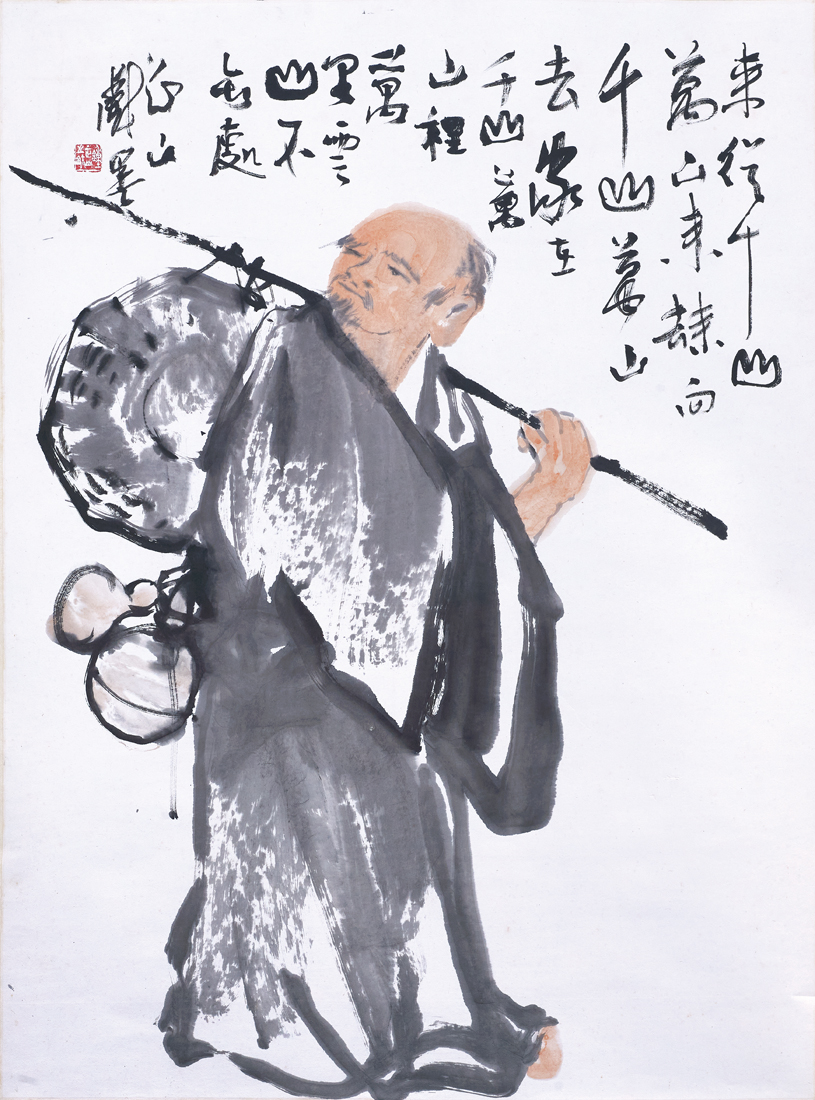 来從千山
萬山来歸向
千山萬山
去家在
千山萬
山裡
萬
里雲
山不
處
山
戲墨